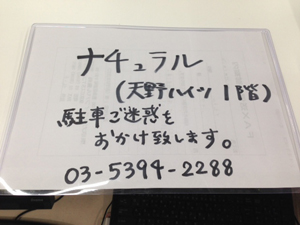 ナチュラル
(天野ハイツ1階)
駐車ご迷惑を
おかけ致します。
03-5394-2288